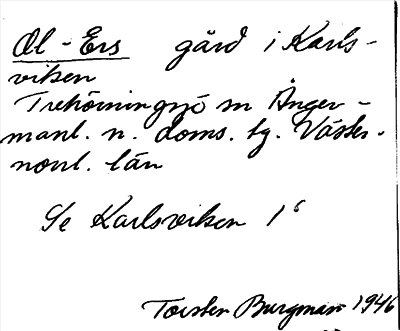 Ol-Ers gård i Karls-
viken
Trehörningsjö sn Ånger-
manl. n. doms. tg. Väster-
norrl. län
Se Karlsviken 1⁶
Torsten Burgman 1946